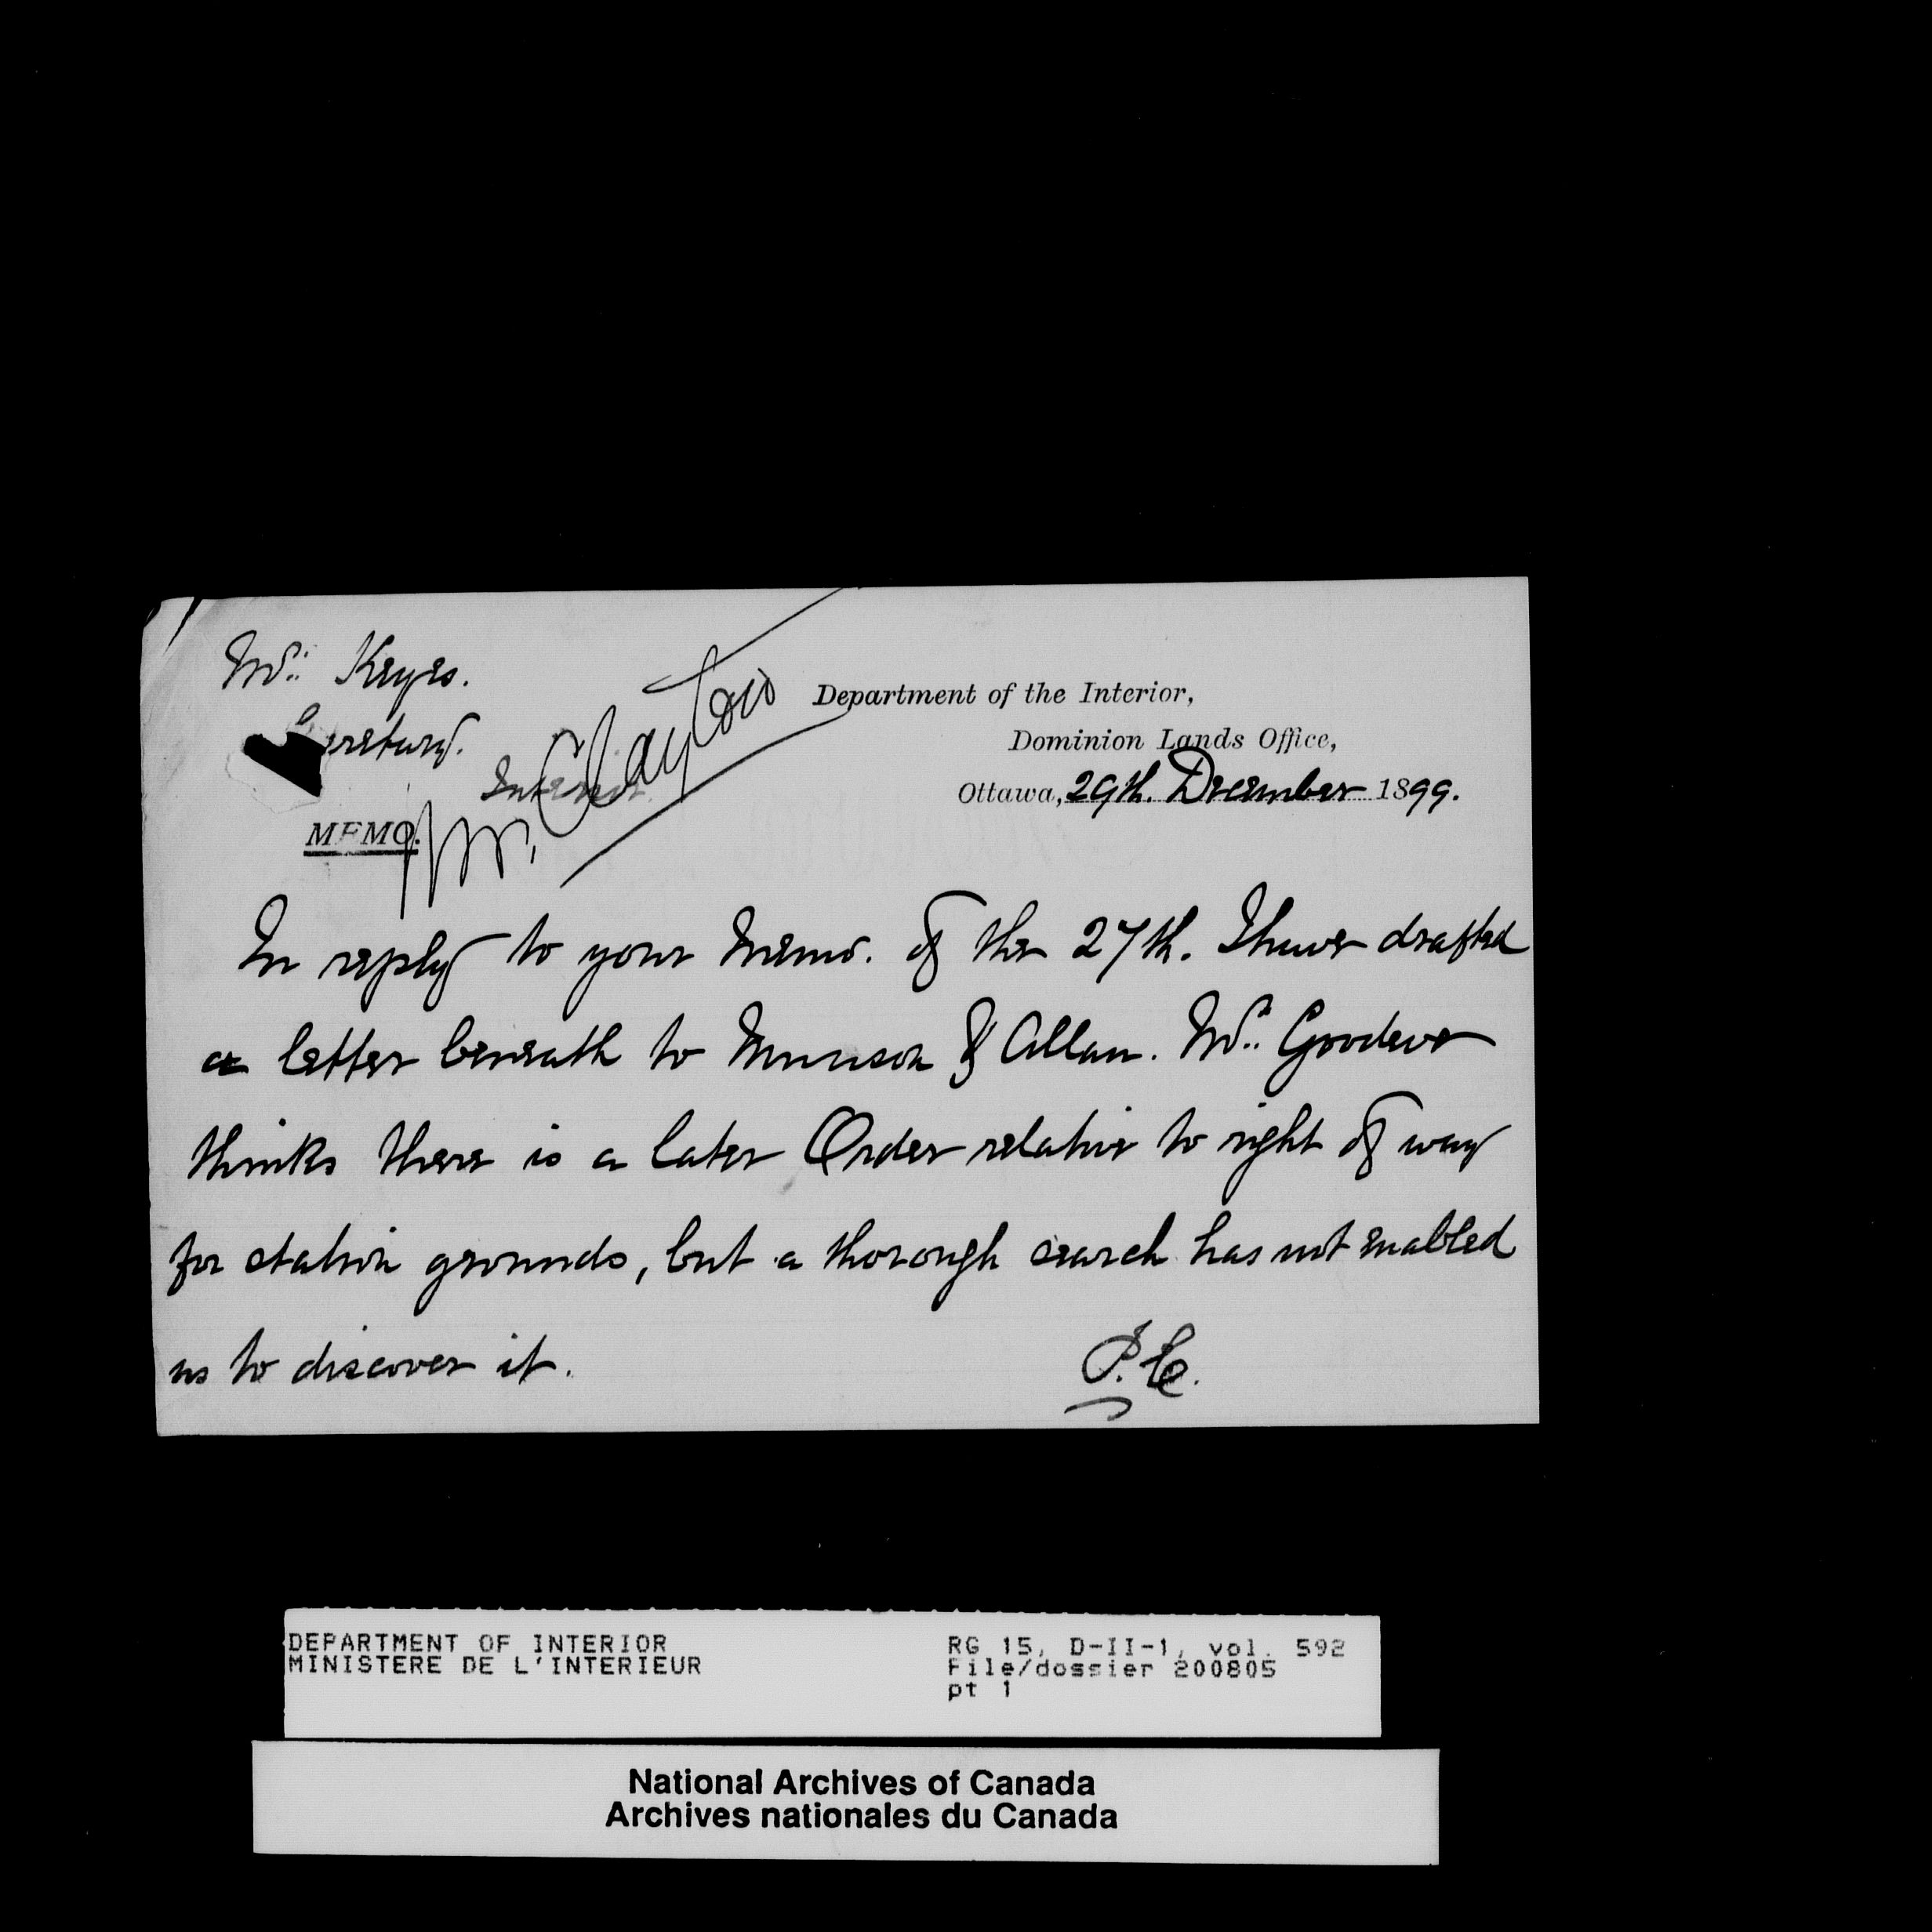 Mr. Keyes.
Secretary.
Interior.
Mr. Clayton
Department of the Interior,
Dominion Lands Office,
Ottawa, 29th. December 1899.
MEMO.
In reply to your Memo. of the 27th. I have drafted
a letter beneath to Munson & Allan. Mr. Goodeve
thinks there is a later Order relative to right of way
for station grounds, but a thorough search has not enabled
us to discover it.
P.C.
DEPARTMENT OF INTERIOR
MINISTERE DE L'INTERIEUR
RG 15, D-II-1, vol. 592
File/dossier 200805
pt 1
National Archives of Canada
Archives nationales du Canada